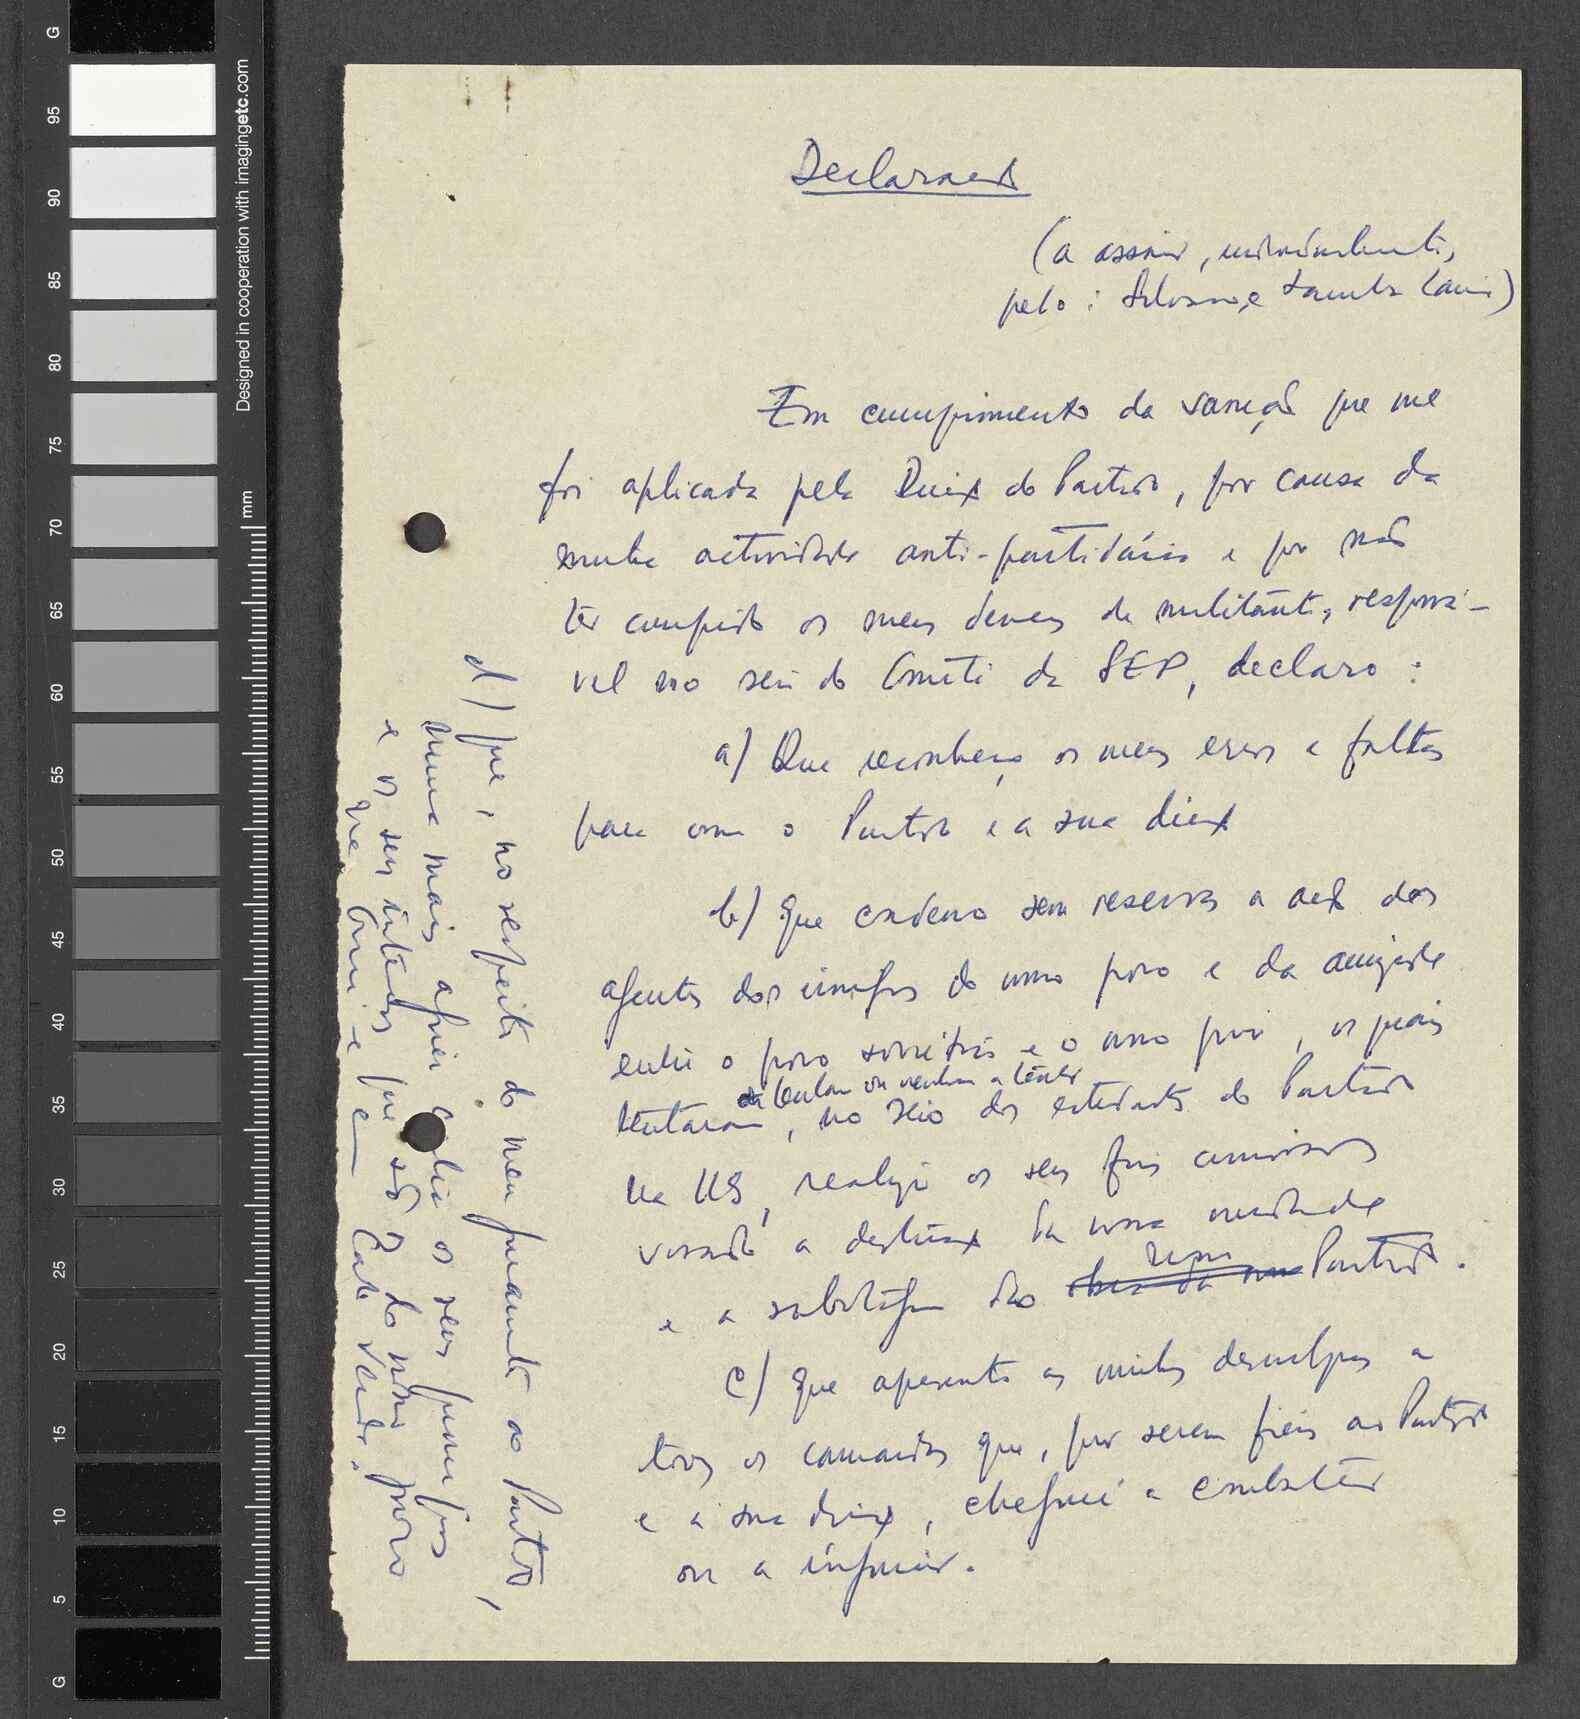 Declaração
(a assinar, individualmente,
pelo: e Lamba
Em cumprimento da sanção que me
foi aplicada pela Direç do Partido, por causa da
minha actividade anti-partidária e por não
ter cumprido os meus deveres de militante, responsá-
vel no seio do Comité da SEP, declaro:
a) Que reconheço os meus erros e faltas
para com o Partido e a sua direç
b) que condeno sem reservas a acç dos
agentes dos inimigos do nosso povo e da amizade
entre o povo soviético e o nosso povo, os quais
tentam ou venham a tentar
tentaram, no seio dos estudantes do Partido
na US, realizar os seus fins criminosos
visando a destruiç da nossa unidade
e a sabotagem do nosso Partido.
c) que apresento as minhas desculpas a
todos os camaradas que, por serem fieis ao Partido
e à sua direç, cheguei a combater
ou a injuriar.
d) que, no respeito do meu juramento ao Partido,
nunca mais os seus princípios
e os seus interesses que são os do nosso povo
na Guiné e em Cabo Verde.
G
95
90
85
80
75
70
65
60
55
50
45
40
35
30
25
20
15
10
5
G
Designed in cooperation with imagingetc.com
mm